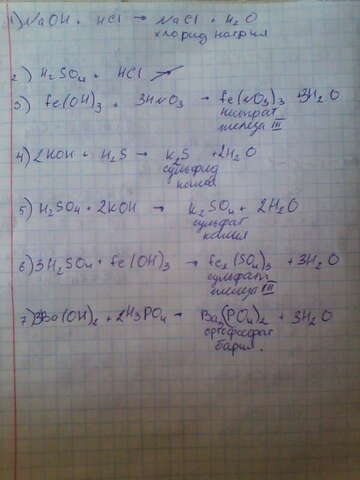 1) NaOH + HCl → NaCl + H₂O
хлорид натрия
2) H₂SO₄ + HCl ↛
3) Fe(OH)₃ + 3HNO₃ → Fe(NO₃)₃ + 3H₂O
нитрат
железа III
4) 2KOH + H₂S → K₂S + 2H₂O
сульфид
калия
5) H₂SO₄ + 2KOH → K₂SO₄ + 2H₂O
сульфат
калия
6) 3H₂SO₄ + Fe(OH)₃ → Fe₂(SO₄)₃ + 3H₂O
сульфат
железа III
7) 3Ba(OH)₂ + 2H₃PO₄ → Ba₃(PO₄)₂ + 3H₂O
ортофосфат
бария.